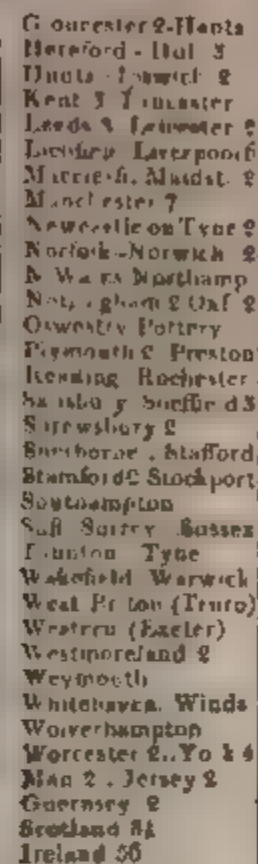 Gloucester 2-Hants
Hereford - Hul 3
Hunts Ipswich 2
Kent 3 Lancaster
Leeds 3 Leicester 2
Lichfiel. Liverpool 6
Maccles. fi. Maidst. 2
Manchester 7
Newcastle on Tyne 2
Norfolk-Norwich 2
N Wales Northamp
Nottingham 2 Oxf 2
Oswestry Pottery
Plymouth 2 Preston
Reading Rochester
Salisbury Sheffield 3
Shrewsbury 2
Sherborne . Stafford
Stamford 2 Stockport
Southampton
Suff Surrey Sussex
Taunton Tyne
Wakefield Warwick
West Briton (Truro)
Western (Exeter)
Westmoreland 2
Weymouth
Whitehaven. Winds
Wolverhampton
Worcester 2.. York 4
Man 2 . Jersey 2
Guernsey 2
Scotland
Ireland 56